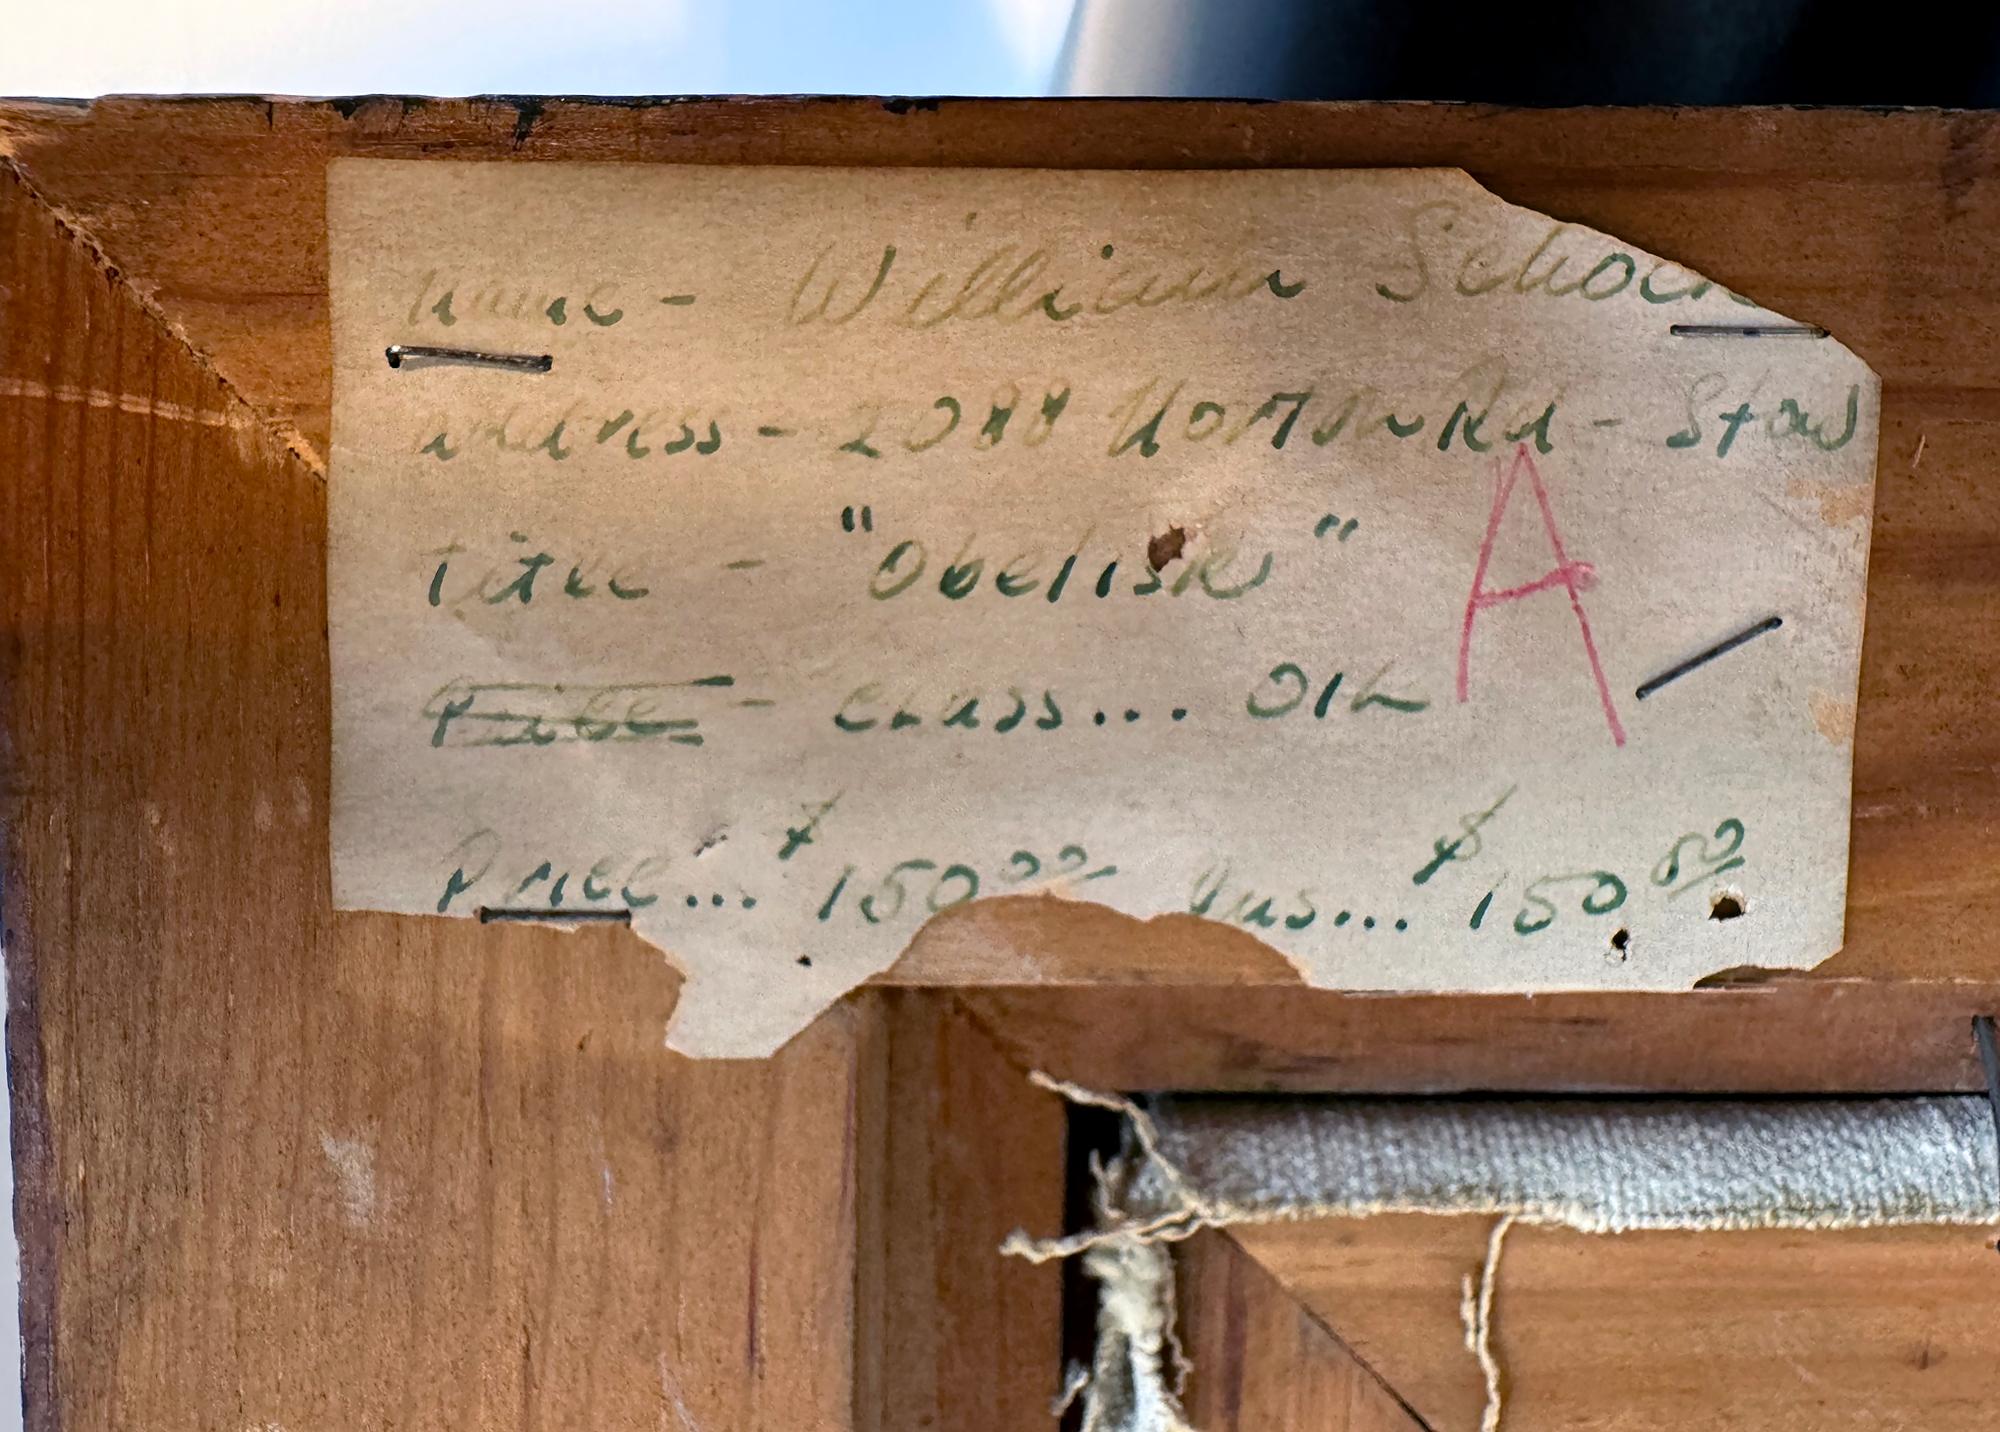 name - William Schock
address - 2088 Norton Rd - Stow
Title - "Obelisk"
A
- CLASS... OIL
Price... $150.00 Ins... $150.00